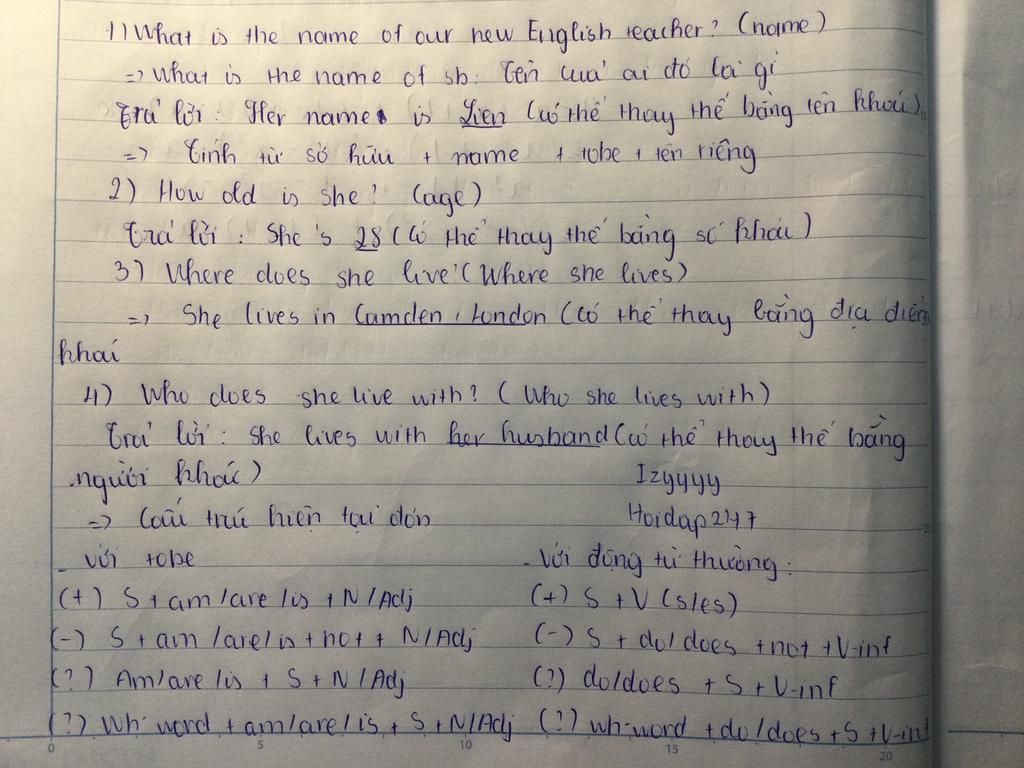 1) What is the name of our new English teacher? (name)
=> What is the name of sb: Tên của ai đó là gì
Trả lời : Her name is Lien (có thể thay thế bằng tên khác)
=> Tính từ sở hữu + name + tobe + tên riêng
2) How old is she? (age)
Trả lời : She's 28 (có thể thay thế bằng số khác)
3) Where does she live? (Where she lives)
=> She lives in Camden, London (có thể thay bằng địa điểm
khác
4) Who does she live with? ( Who she lives with)
Trả lời : She lives with her husband (có thể thay thế bằng
người khác)
Izyyyy
=> Cấu trú hiện tại đơn
Hoidap247
- với tobe
- Với động từ thường :
(+) S + am / are / is + N / Adj
(+) S + V (s/es)
(-) S + am / are / is + not + N / Adj
(-) S + do / does + not + V-inf
(?) Am / are / is + S + N / Adj
(?) do/does + S + V-inf
(?) Wh-word + am / are / is + S + N/Adj
(?) wh-word + do / does + S + V-inf
0 5 10 15 20